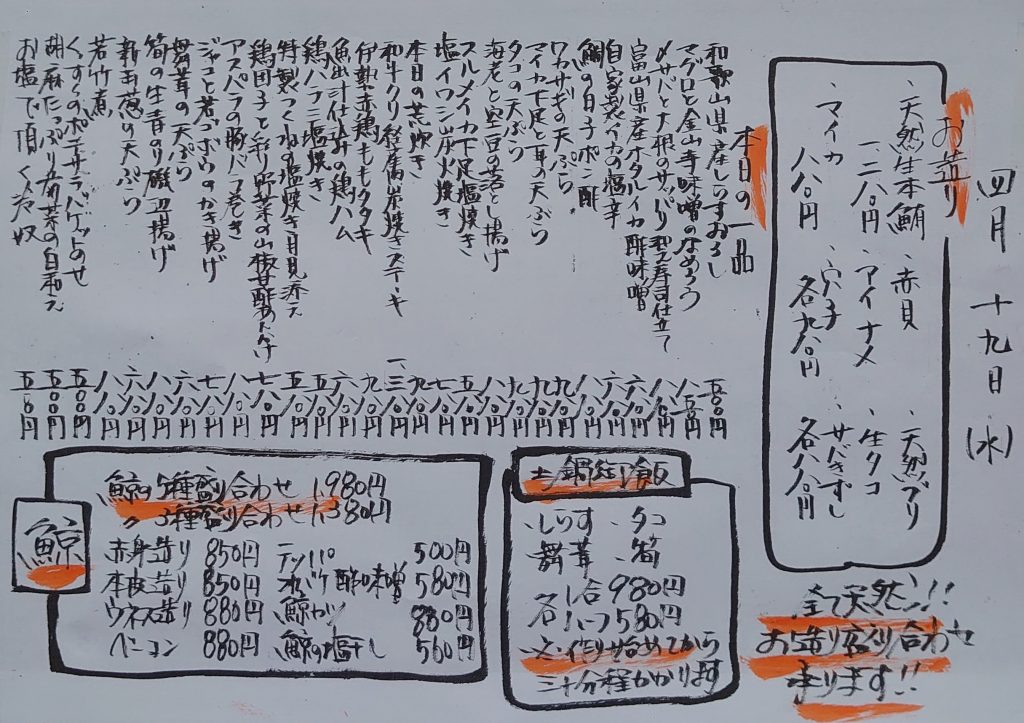 四月 十九日 (水)
お造り
、天然生本鮪 、赤貝 、天然ブリ
一二八〇円 、アイナメ 、生タコ
、マイカ 、穴子 、サバきずし
八八〇円 各九八〇円 各八八〇円
全て天然ン!!
お造り盛り合わせ
承ります!!
本日の一品
和歌山県産しらすおろし 五八〇円
マグロと金山寺味噌のなめろう 八八〇円
〆サバと大根のサッパリ押し寿司仕立て 八八〇円
富山県産ホタルイカ酢味噌 六八〇円
自家製イカの塩辛 六八〇円
鯛の白子ポン酢 八八〇円
ワカサギの天ぷら 九八〇円
マイカ下足と耳の天ぷら 九八〇円
タコの天ぷら 九八〇円
海老と空豆の落とし揚げ 八八〇円
スルメイカ下足塩焼き 五八〇円
塩イワシ炭火焼き 七八〇円
本日の荒炊き 九八〇円
和牛クリ 炭焼きステーキ 一、三八〇円
伊勢赤鶏ももタタキ 九八〇円
魚出汁仕込みの鶏ハム 六八〇円
鶏ハラミ塩焼き 五八〇円
特製つくねの塩焼き月見添え 五八〇円
鶏団子と彩り野菜の山椒甘酢あんかけ 七八〇円
アスパラの豚バラ巻き 八八〇円
ジャコと若ゴボウのかき揚げ 七八〇円
舞茸の天ぷら 六八〇円
筍の生青のり磯辺揚げ 八八〇円
新玉葱の天ぷら 六八〇円
若竹煮 八八〇円
くずしポテサラ バゲットのせ 五八〇円
胡麻たっぷり五菜の白和え 五八〇円
お塩で頂く冷奴 五八〇円
土鍋炊き御飯
・しらす ・タコ
・舞茸 ・筍
各一合 980円
各ハーフ 580円
・注文・作り始めてから
三十分程かかります
鯨
鯨の5種盛り合わせ 1,980円
〃 3種盛り合わせ 1,380円
赤身造り 850円 テッパ 500円
本皮造り 850円 オバケ酢味噌 580円
ウネス造り 880円 鯨カツ 880円
ベーコン 880円 鯨の塩干し 560円